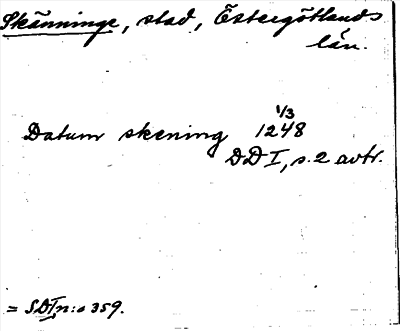 Skänninge, stad, Östergötlands
län.
1/3
Datum skening 1248
DD I, s. 2 avtr.
= SD I n:o 359.